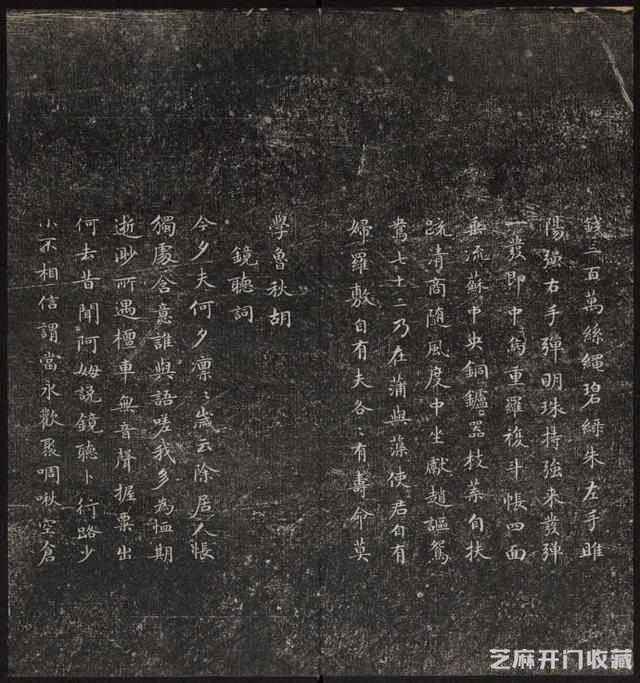 錢三百萬絲繩碧緑朱左手雎
陽彊右手彈明珠持強来發彈
一發即中烏重羅複斗帳四面
垂流蘇中央銅鑪器枝葉自扶
疏清商随風度中坐獻趙謳鴛
鴦七十二乃在蒲與藻使君自有
婦羅敷自有夫各〻有壽命莫
學魯秋胡
鏡聽詞
今夕夫何夕凛〻歲云除居人悵
獨處含意誰與語嗟我多為恤期
逝眇所遇檀車無音聲握粟出
何去昔聞阿姆説鏡聽卜行路少
小不相信謂當永歡聚啁啾空倉
芝麻开门收藏